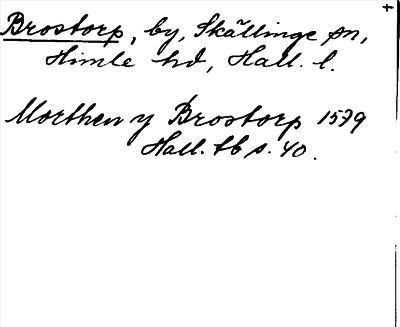 Brostorp, by, Skällinge sn,
Himle hd, Hall. l.
Morthen y Brostorp 1579
Hall. tb s. 40.